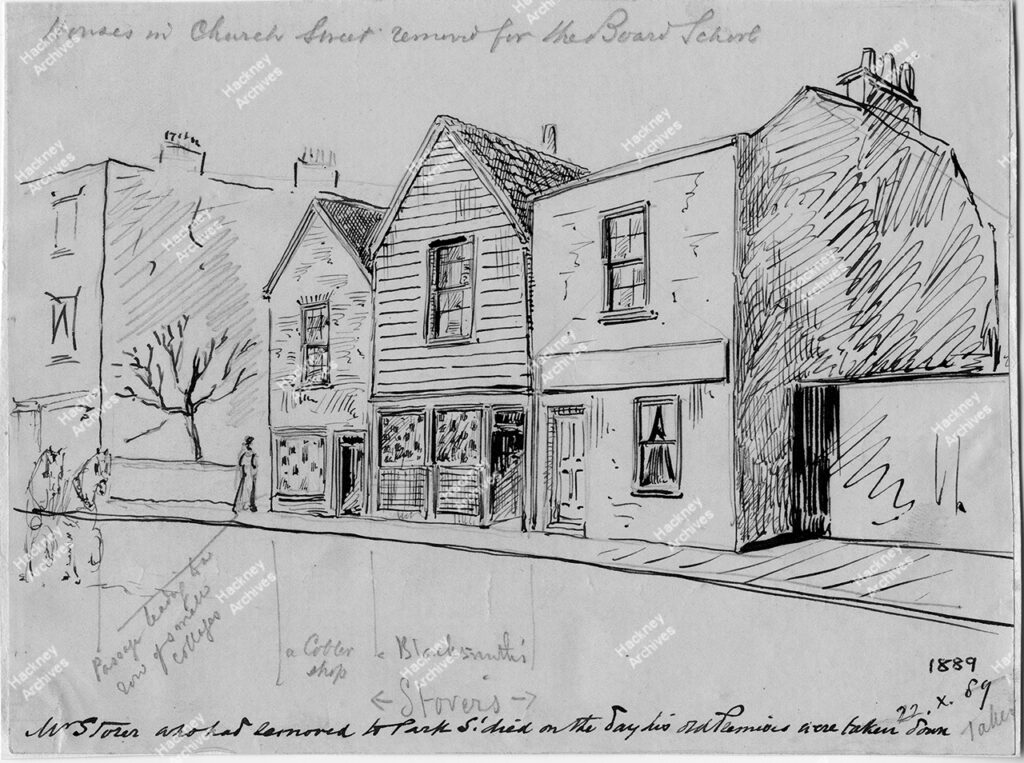 Houses in Church Street removed for the Board School
Passage leading to a
row of small
cottages
a Cobler
shop
a Blacksmith's
← Stover's →
1889
22. X. 89
Mr Stover who had removed to Park St died on the day his old Premises were taken down
Taken
Hackney Archives